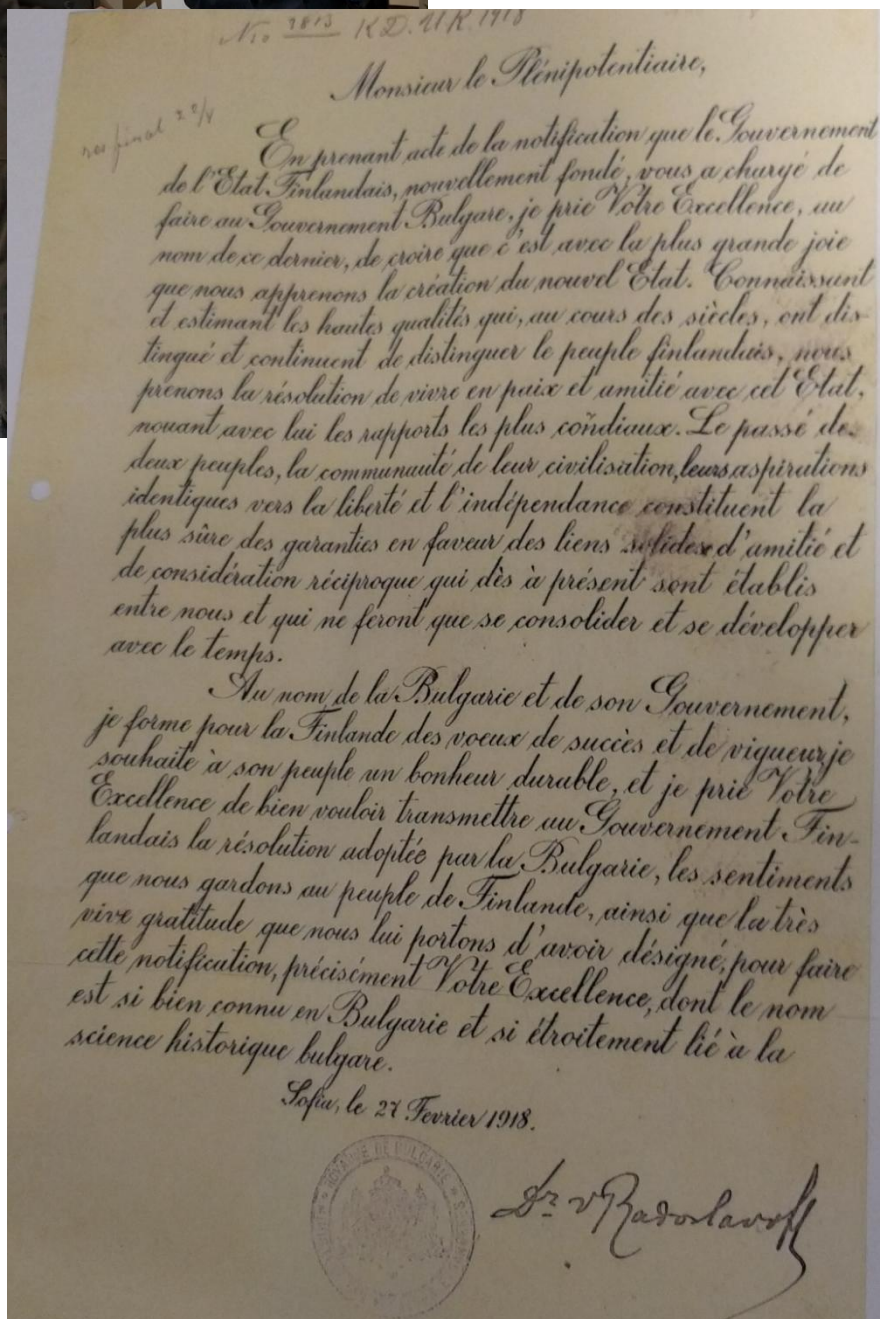 No 3813 KD. UK. 1918
Monsieur le Plénipotentiaire,
En prenant acte de la notification que le Gouvernement
de l'Etat Finlandais, nouvellement fondé, vous a chargé de
faire au Gouvernement Bulgare, je prie Votre Excellence, au
nom de ce dernier, de croire que c'est avec la plus grande joie
que nous apprenons la création du nouvel Etat. Connaissant
et estimant les hautes qualités qui, au cours des siècles, ont dis-
tingué et continuent de distinguer le peuple finlandais, nous
prenons la résolution de vivre en paix et amitié avec cet Etat,
nouant avec lui les rapports les plus cordiaux. Le passé des
deux peuples, la communauté de leur civilisation, leurs aspirations
identiques vers la liberté et l'indépendance constituent la
plus sûre des garanties en faveur des liens solides d'amitié et
de considération réciproque qui dès à présent sont établis
entre nous et qui ne feront que se consolider et se développer
avec le temps.
Au nom de la Bulgarie et de son Gouvernement,
je forme pour la Finlande des voeux de succès et de vigueur, je
souhaite à son peuple un bonheur durable, et je prie Votre
Excellence de bien vouloir transmettre au Gouvernement Fin-
landais la résolution adoptée par la Bulgarie, les sentiments
que nous gardons au peuple de Finlande, ainsi que la très
vive gratitude que nous lui portons d'avoir désigné, pour faire
cette notification, précisément Votre Excellence, dont le nom
est si bien connu en Bulgarie et si étroitement lié à la
science historique bulgare.
Sofia, le 27 Fevrier 1918.
ROYAUME DE BULGARIE
Dr. V Radoslavoff